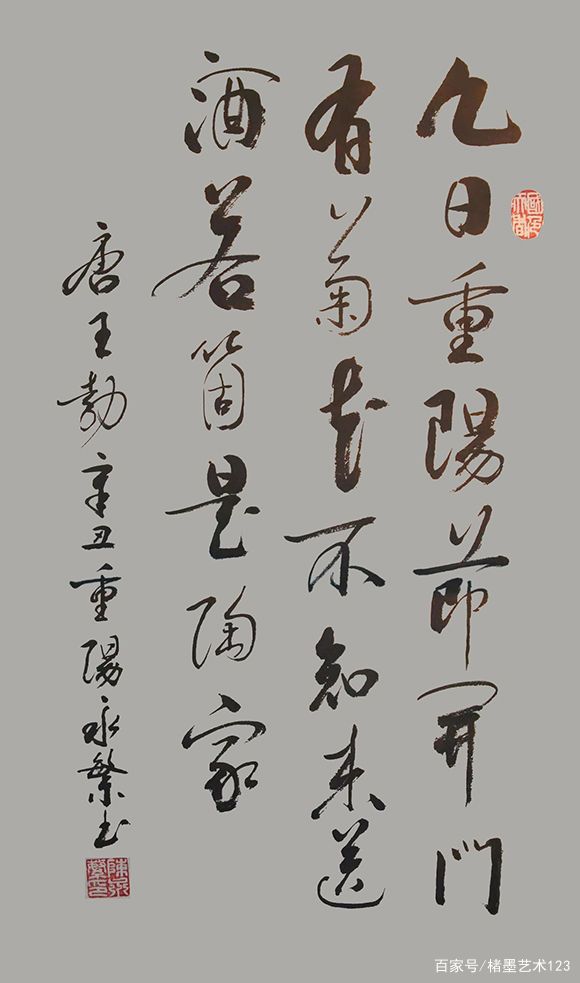 九日重陽節開門
有菊花不知来送
酒若箇是陶家
唐王勃辛丑重陽永繁书
陳永繁印
百家号/楮墨艺术123